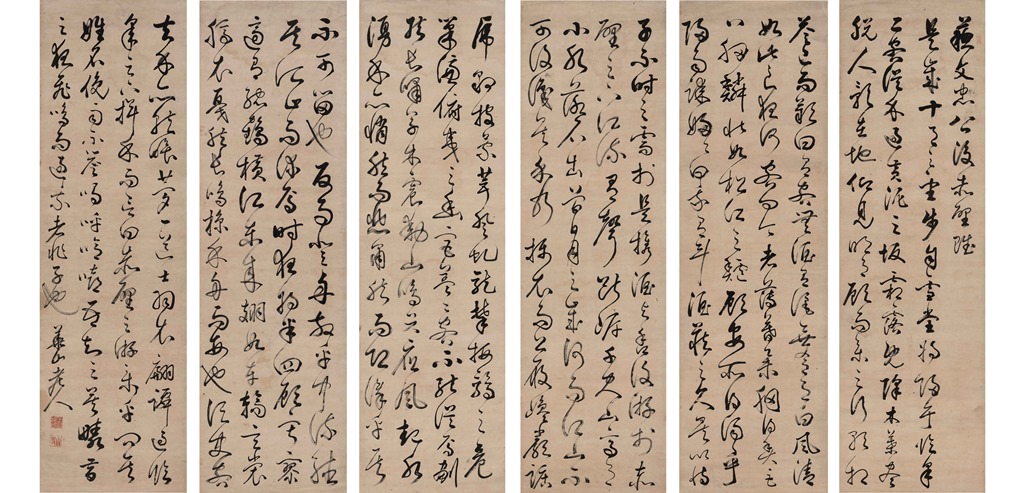 蘇文忠公後赤壁賦
是歲十月之望步自雪堂將歸于臨皋
二客從予過黃泥之坂霜露既降木葉盡
脫人影在地仰見明月顧而樂之行歌相
答已而歎曰有客無酒有酒無肴月白風清
如此良夜何客曰今者薄暮舉網得魚巨
口細鱗狀如松江之鱸顧安所得酒乎
歸而謀諸婦婦曰我有斗酒藏之久矣以待
子不時之需於是攜酒與魚復游於赤
壁之下江流有聲斷岸千尺山高月
小水落石出曾日月之幾何而江山不
可復識矣予乃攝衣而上履巉巖踞
虎豹披蒙茸登虬龍攀栖鶻之危
巢俯馮夷之幽宮蓋二客不能從焉劃
然長嘯草木震動山鳴谷應風起水
湧予亦悄然而悲肅然而恐凜乎其
不可留也反而登舟放乎中流聽
其所止而休焉時夜將半四顧寂寥
適有孤鶴橫江東來翅如車輪玄裳
縞衣戛然長鳴掠予舟而西也須臾客
去予亦就睡夢一道士羽衣翩躚過臨
皋之下揖予而言曰赤壁之游樂乎問其
姓名俛而不答嗚呼噫嘻我知之矣疇昔
之夜飛鳴而過我者非子也 華山老人